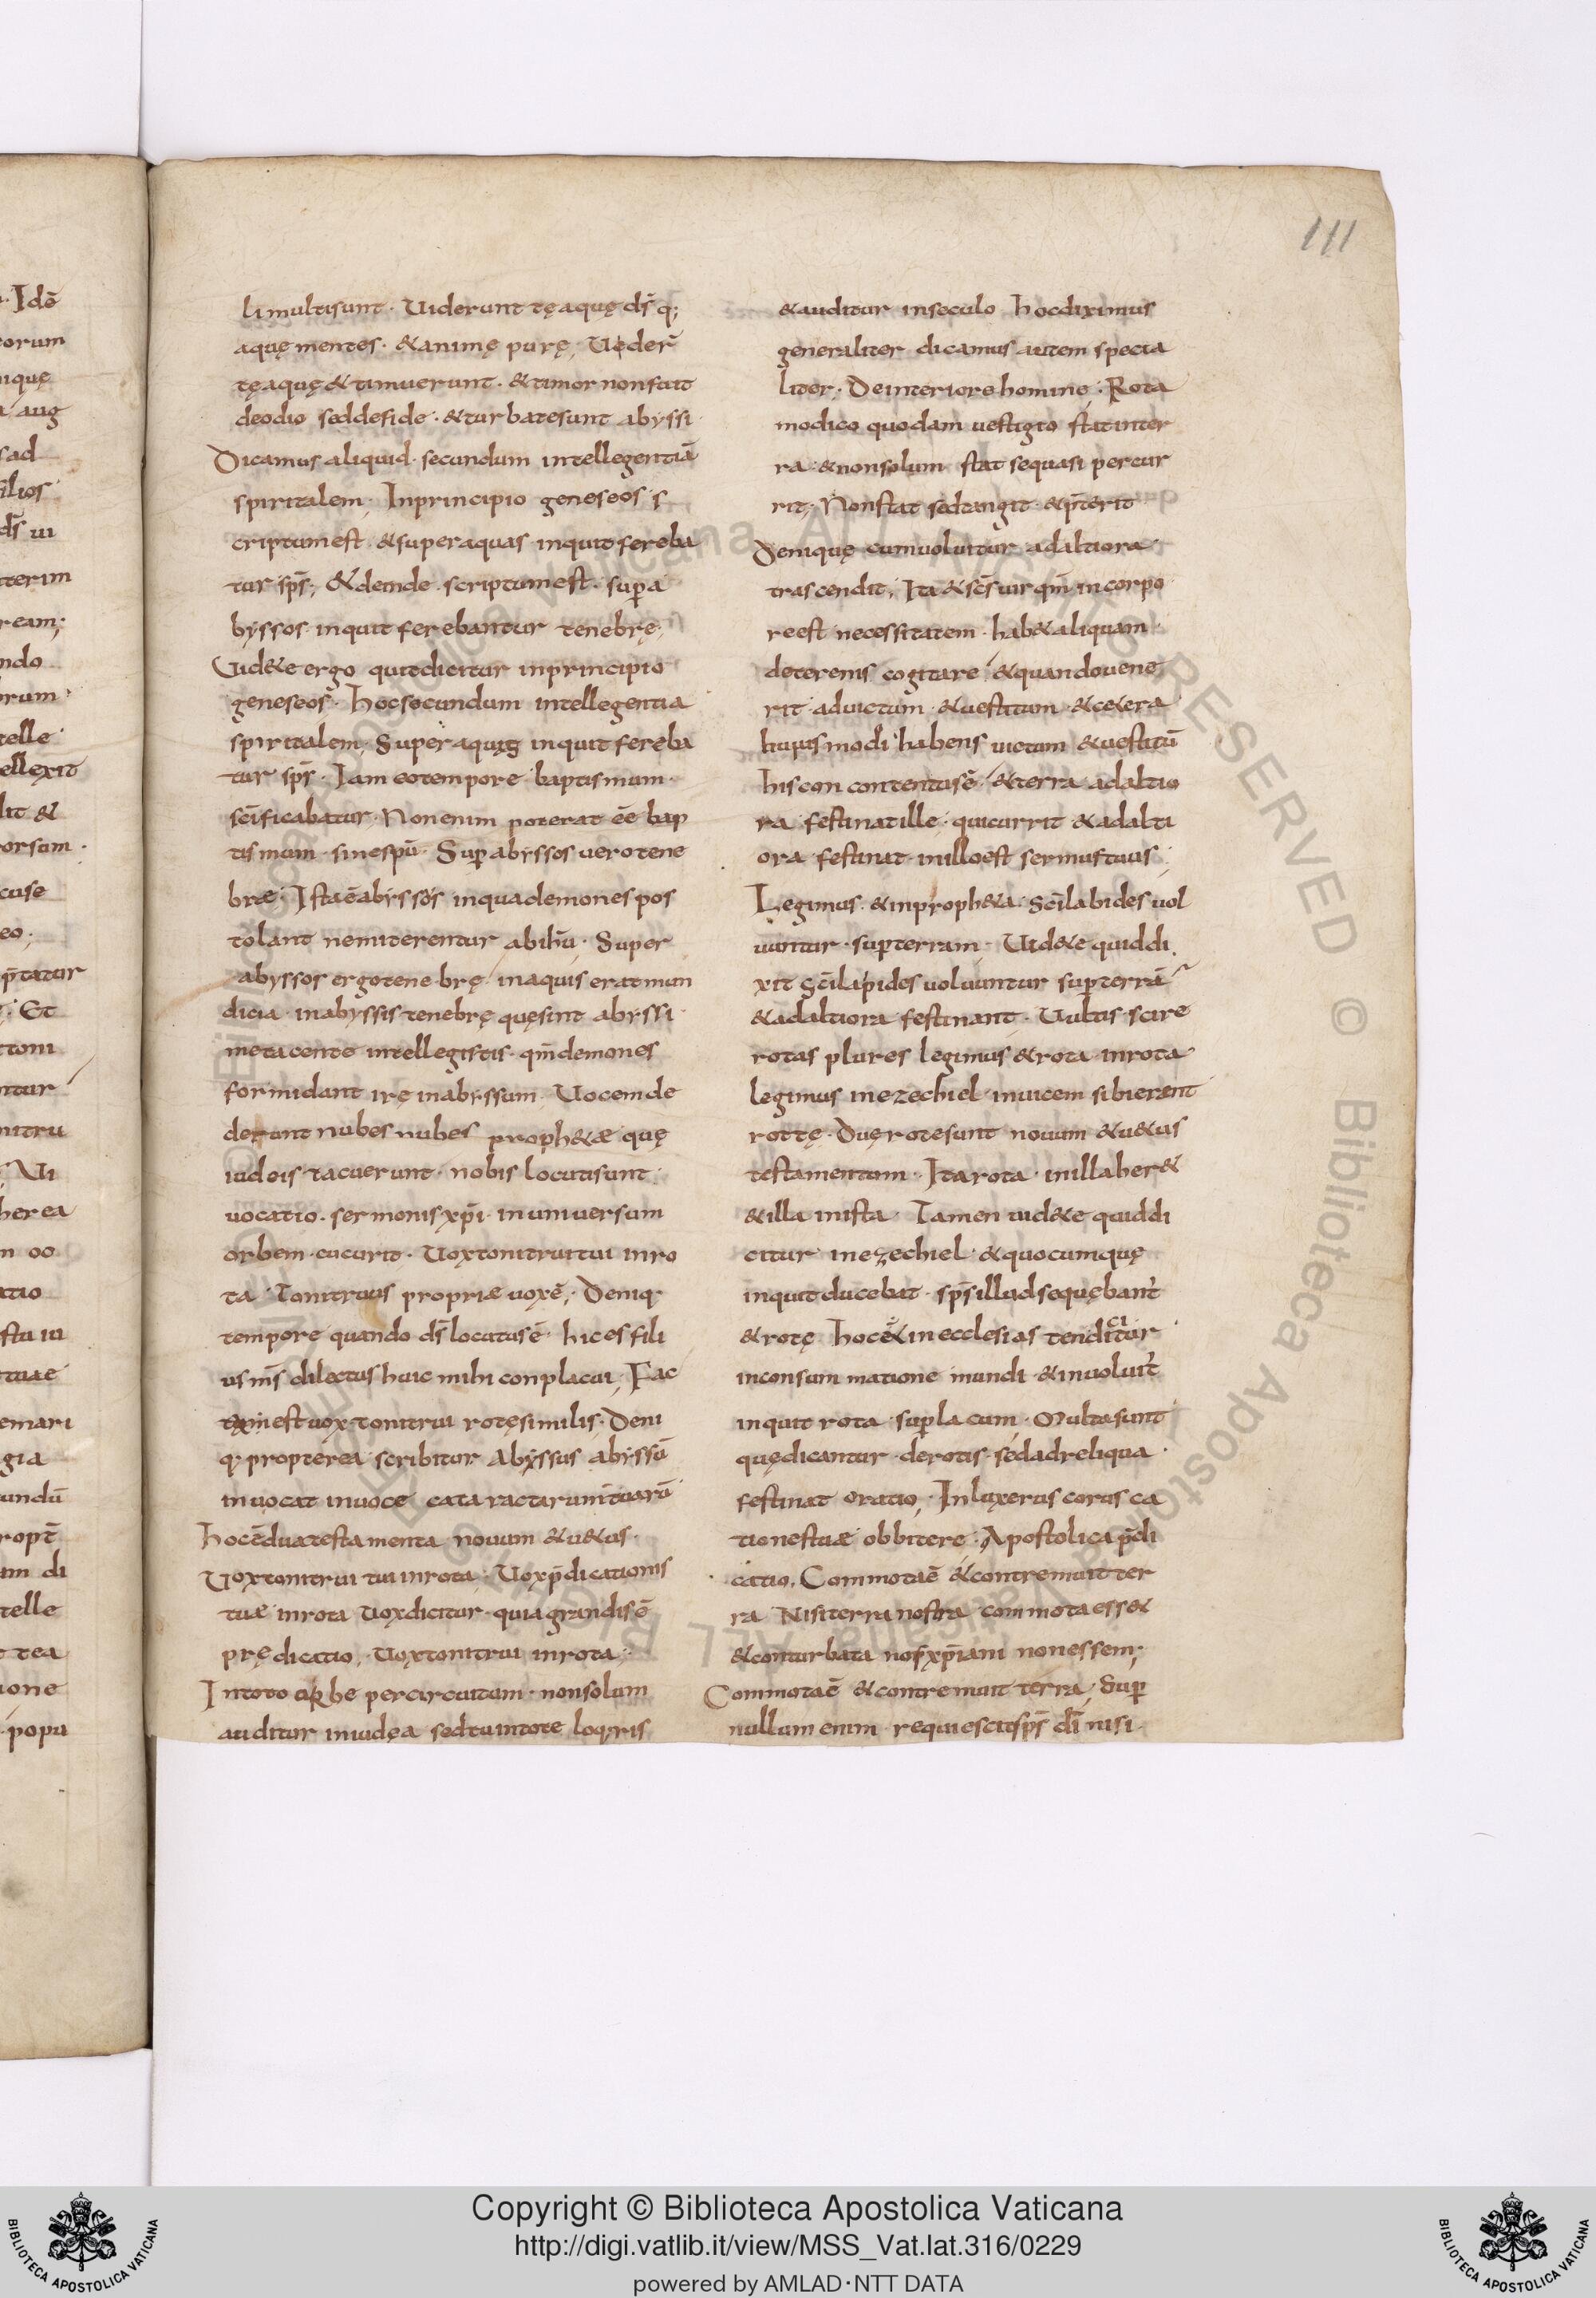 111
li multi sunt · Uiderunt tę aquę ds̄ q;
aquę mentes · & animę purę, Uider̄
tę aquę & timuerunt · & timor non fuit
de odio sed de fide · & turbate sunt abyssi ·
Dicamus aliquid · secundum intellegentiā
spiritalem · In principio geneseos s
criptum est · & super aquas inquit fereba
tur sp̄s; & deinde · scriptum est · sup̄ a
byssos · inquit ferebantur tenebrę ·
Uid&e ergo quit dicitur in principio
geneseos · hoc secundum intellegentia
spiritalem · Super aquęs inquit fereba
tur sp̄s · Iam eo tempore baptismum ·
sc̄ificabatur · Non enim poterat ēē bap
tismum · sine sp̄u · Sup̄ abyssos uero tene
bræ · Ista ē abyssos in qua demones pos
tolant ne miterentur ab ih̄u · Super
abyssos ergo tenebrę · in aquis erat mun
dicia · in abyssis tenebrę quę sint abyssi ·
me tacente intellegistis · qm̄ demones
formidant irę in abyssum · Uocem de
derunt nubes nubes proph&æ quę
iudeis tacuerunt · nobis locuti sunt ·
uocatio · sermonis xp̄i · in uniuersum
orbem · cucurit · Uox tonitrui tui in ro
ta · Tonitruus propriæ uox ē; Deniq·
tempore quando ds̄ locutus ē · hic es fili
us ms̄ dilectus huic mihi conplacui, Fac
est uox tonitrui rotę similis · Deni
q· propterea scribitur Abyssus abyssū
inuocat in uoce cataractarum tuarū
hoc ē dua testamenta nouum & u&us ·
Uox tonitrui tui in rota · Uox p̄dicationis
tuæ in rota uox dicitur · quia grandis ē
prędicatio, · Uox tonitrui in rota ·
In toto orbe per circuitum · non solum
auditur in iudęa sed tu in tote loq·ris
& auditur in seculo hoc diximus
generaliter dicamus autem specia
liter · De interiore homine · Rota
modico quodam uestigio stat in ter
ra & non solum stat se quasi percur
rit · Non stat sed tangit · & p̄terit
Deniquę cum uoluitur ad altiora ·
trascendit, Ita & sc̄s uir qm̄ in corpo
re est necessitatem · hab& aliquam ·
de terenis cogitare & quando uene
rit aduictum · & uestitum & c&era
huius modi habens uictum & uestitū
his con contentus ē · & terra ad altio
ra festinat ille quicurrit & ad alti
ora festinat · in illo est sermus tuus ;
Legimus & in proph&a · Sc̄i labides uol
uuntur · sup̄ terram · Uid&e quid di
xit Sc̄i lapides uoluuntur sup̄ terrā
& ad altiora festinant · Uultis scire
rotas plures legimus & rota in rota
legimus in ezechiel · inuicem sibi erent
rottę · Duę rote sunt nouum & u&us
testamentum · Ita rota · in illa her&
& illa in ista · Tamen uid&e quid di
citur in ezechiel & quocumquę
inquit ducebat · sp̄s illud sequębant̄
& rotę hoc ē & in ecclesias tenditur
in consummatione mundi & inuoluit̄
inquit rota sup̄ lacum, Multa sunt
quę dicantur · de rotis · sed ad reliqua ·
festinat oratio, · Inluxerus corus ca
tionestuæ obbitere · Apostolica p̄di
catio, Commota ē & contremuit ter
ra Nisi terra nostra commota ess&
& conturbata nos xp̄iani non essem;
Commota ē & contremuit terra, Sup̄
nullum enim · requiescit sp̄s dī nisi ·
Copyright © Biblioteca Apostolica Vaticana
http://digi.vatlib.it/view/MSS_Vat.lat.316/0229
powered by AMLAD·NTT DATA